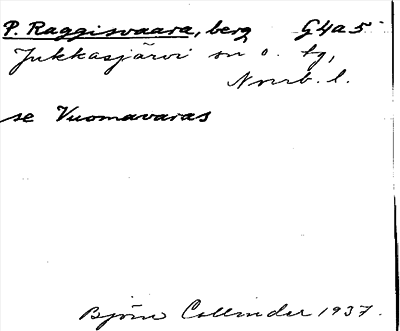 P. Raggisvaara, berg G4a5
Jukkasjärvi sn o. tg,
Norrb. l.
se Vuomavaras
Björn Collinder 1937.